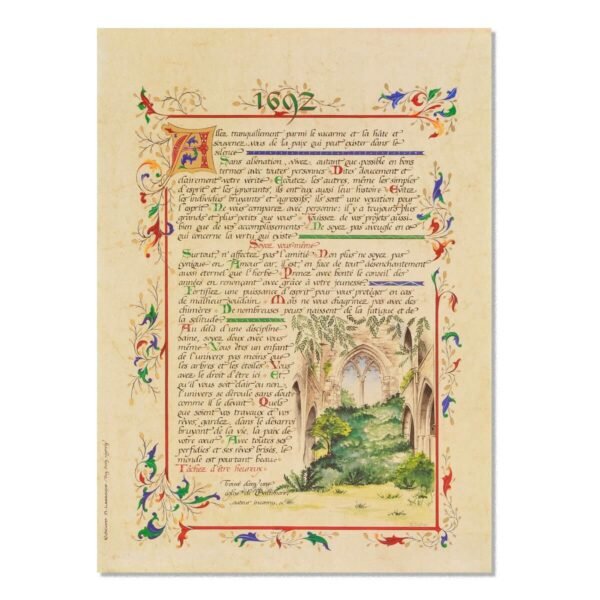 1692
Allez tranquillement parmi le vacarme et la hâte et
souvenez-vous de la paix qui peut exister dans le
silence
Sans aliénation, vivez autant que possible en bons
termes avec toutes personnes Dites doucement et
clairement votre vérité Ecoutez les autres, même les simples
d'esprit et les ignorants, ils ont eux aussi leur histoire Evitez
les individus bruyants et agressifs, ils sont une vexation pour
l'esprit Ne vous comparez avec personne: il y a toujours plus
grands et plus petits que vous Jouissez de vos projets aussi
bien que de vos accomplissements Ne soyez pas aveugle en ce
qui concerne la vertu qui existe
Soyez vous-même
Surtout, n'affectez pas l'amitié Non plus ne soyez pas
cynique en Amour car, il est, en face de tout désenchantement
aussi éternel que l'herbe Prenez avec bonté le conseil des
années en renonçant avec grâce à votre jeunesse
Fortifiez une puissance d'esprit pour vous protéger en cas
de malheur soudain Mais ne vous chagrinez pas avec des
chimères De nombreuses peurs naissent de la fatigue et de
la solitude
Au delà d'une discipline
saine, soyez doux avec vous
même Vous êtes un enfant
de l'univers pas moins que
les arbres et les étoiles Vous
avez le droit d'être ici Et
qu'il vous soit clair ou non
l'univers se déroule sans doute
comme il le devait Quels
que soient vos travaux et vos
rêves, gardez, dans le désarroi
bruyant de la vie, la paix de
votre cœur Avec toutes ses
perfidies et ses rêves brisés, le
monde est pourtant beau
Tâchez d'être heureux
Trouvé dans une
église de Baltimore,
auteur inconnu